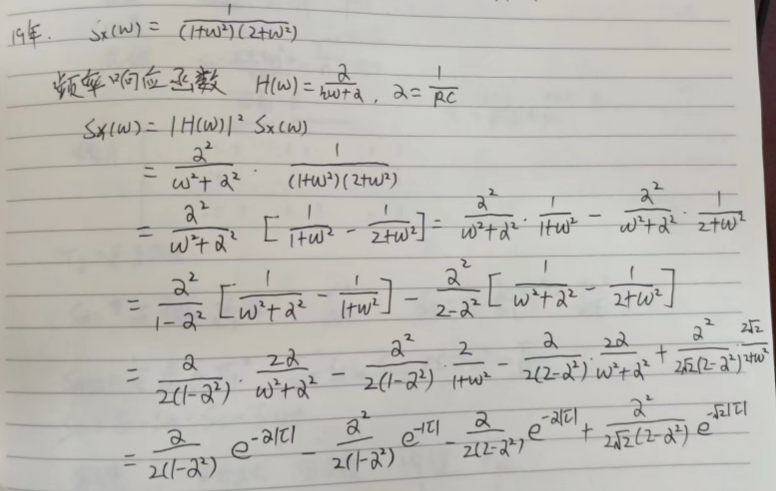 19年. Sx(ω) = 1/((1+ω²)(2+ω²))
频率响应函数 H(ω) = α/(iω+α), α = 1/RC
Sx(ω) = |H(ω)|² Sx(ω)
= α²/(ω²+α²) · 1/((1+ω²)(2+ω²))
= α²/(ω²+α²) [1/(1+ω²) - 1/(2+ω²)] = α²/(ω²+α²) · 1/(1+ω²) - α²/(ω²+α²) · 1/(2+ω²)
= α²/(1-α²) [1/(ω²+α²) - 1/(1+ω²)] - α²/(2-α²) [1/(ω²+α²) - 1/(2+ω²)]
= α/(2(1-α²)) · 2α/(ω²+α²) - α²/(2(1-α²)) · 2/(1+ω²) - α/(2(2-α²)) · 2α/(ω²+α²) + α²/(2√2(2-α²)) · 2√2/(2+ω²)
= α/(2(1-α²)) e^(-α|τ|) - α²/(2(1-α²)) e^(-|τ|) - α/(2(2-α²)) e^(-α|τ|) + α²/(2√2(2-α²)) e^(-√2|τ|)